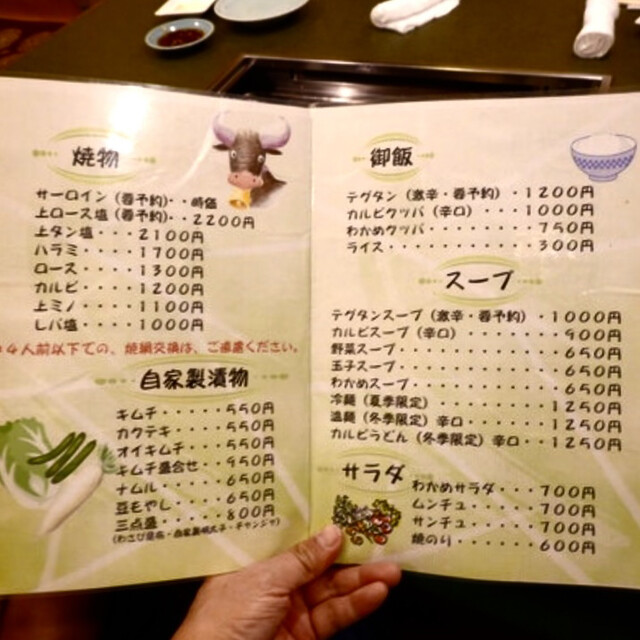 焼物
サーロイン（要予約）・・時価
上ロース塩（要予約）・・2200円
上タン塩・・・・2100円
ハラミ・・・・・1700円
ロース・・・・・1300円
カルビ・・・・・1200円
上ミノ・・・・・1100円
レバ塩・・・・・1000円
4人前以下での、焼網交換は、ご遠慮ください。
自家製漬物
キムチ・・・・・550円
カクテキ・・・・550円
オイキムチ・・・550円
キムチ盛合せ・・950円
ナムル・・・・・650円
豆もやし・・・・650円
三点盛・・・・・800円
（わさび昆布・自家製明太子・チャンジャ）
御飯
テグタン（激辛・要予約）・1200円
カルビクッパ（辛口）・・・1000円
わかめクッパ・・・・・・・750円
ライス・・・・・・・・・・300円
スープ
テグタンスープ（激辛・要予約）・1000円
カルビスープ（辛口）・・・・・・900円
野菜スープ・・・・・・・・・・・650円
玉子スープ・・・・・・・・・・・650円
わかめスープ・・・・・・・・・・650円
冷麺（夏季限定）・・・・・・・・1250円
温麺（冬季限定）辛口・・・・・・1250円
カルビうどん（冬季限定）辛口・・1250円
サラダ
わかめサラダ・・・700円
ムンチュ・・・・・700円
サンチュ・・・・・700円
焼のり・・・・・・600円